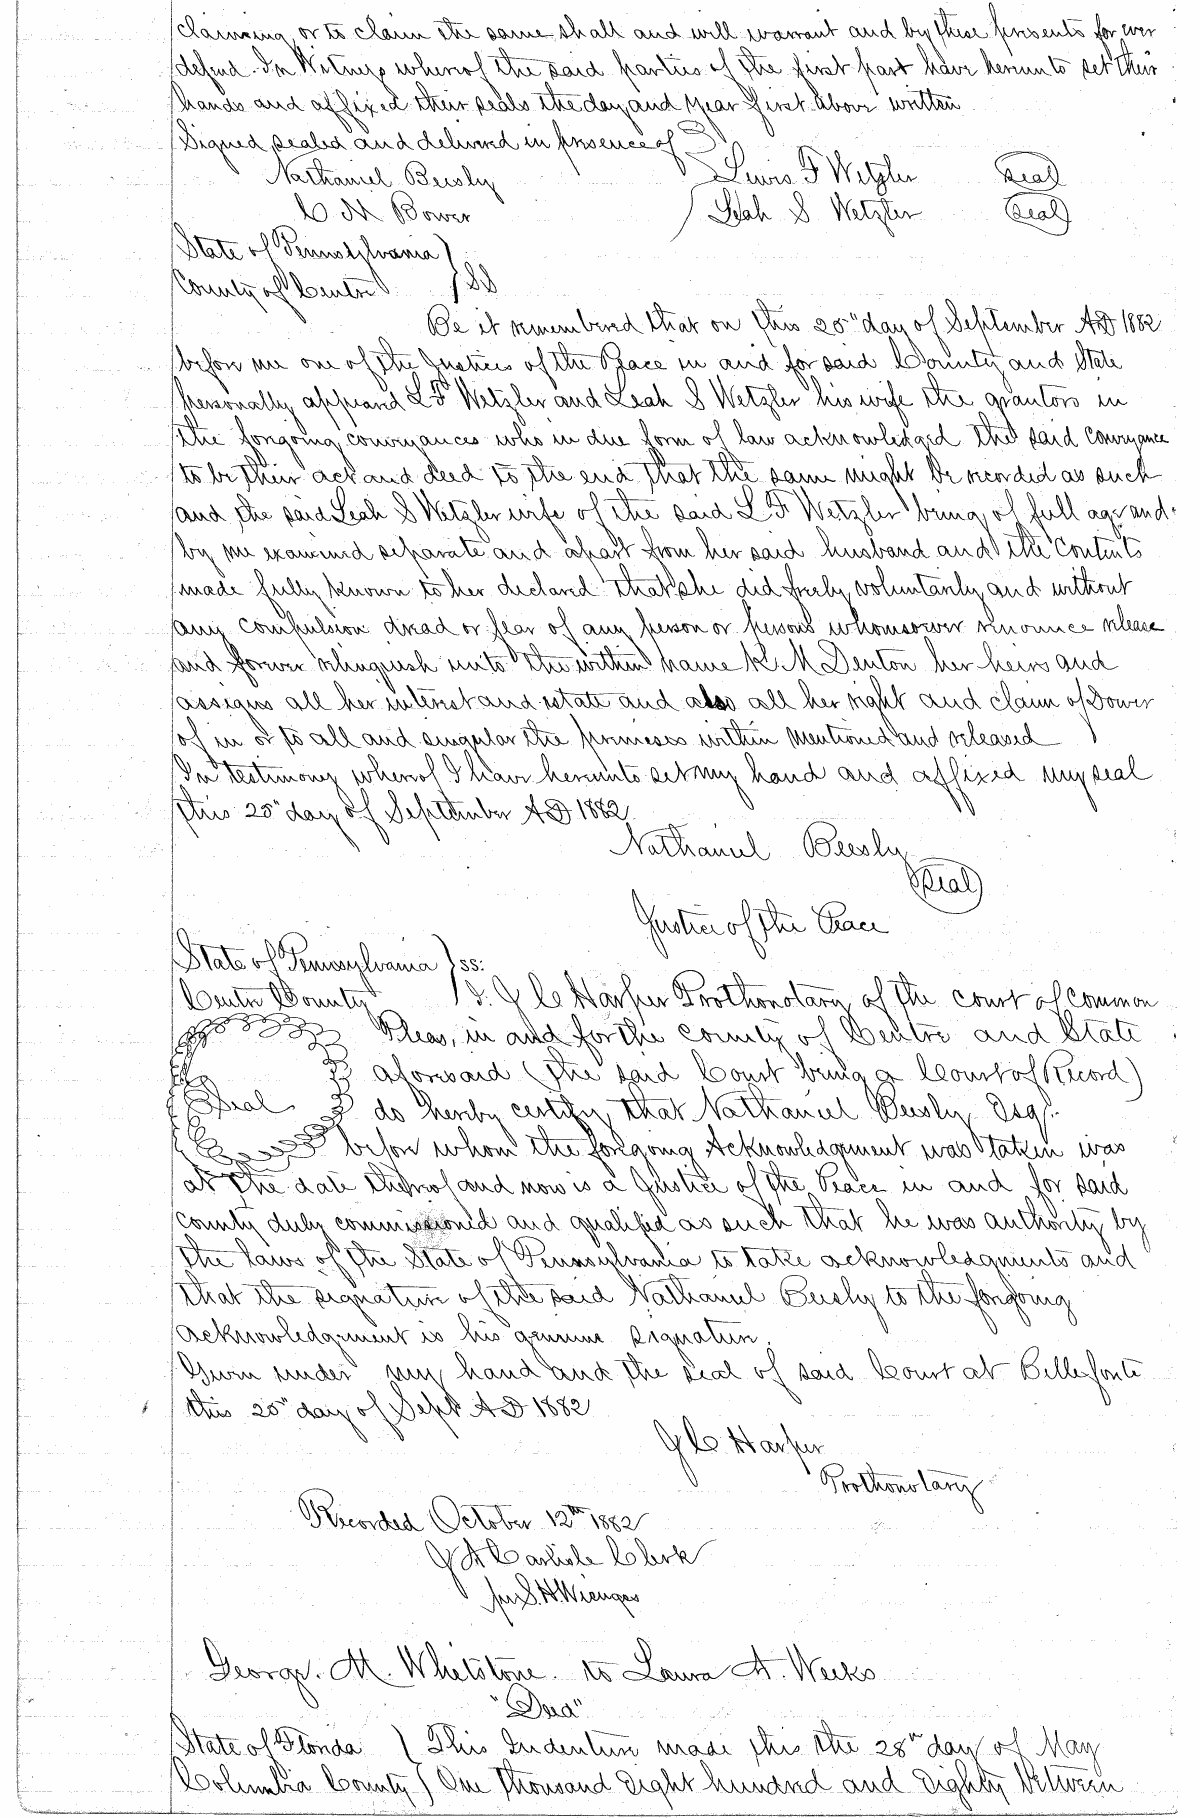 claiming or to claim the same shall and will warrant and by these presents for ever
defend. In Witness whereof the said parties of the first part have hereunto set their
hands and affixed their seals the day and year first above written
Signed, sealed and delivered in presence of
Nathaniel Beesly Lewis F Wetzler Seal
C M Bower Leah S Wetzler Seal
State of Pennsylvania
County of Centre SS
Be it remembered that on this 25" day of September AD 1882
before me one of the Justices of the Peace in and for said County and State
personally appeard L F Wetzler and Leah S Wetzler his wife the grantors in
the forgoing conveyances who in due form of law acknowledged the said conveyance
to be their act and deed to the end that the same might be recorded as such
and the said Leah S Wetzler wife of the said L F Wetzler being of full age and
by me examined separate and apart from her said husband and the contents
made fully known to her declared that she did freely voluntarily and without
any compulsion dread or fear of any person or persons whomsoever renounce release
and forever relinquish unto the within name K. M Denton her heirs and
assigns all her interest and estate and also all her right and claim of Dower
of in or to all and singular the premises within mentioned and released
In testimony whereof I have hereunto set my hand and affixed my seal
this 25" day of September AD 1882
Nathaniel Beesly
Seal
Justice of the Peace
State of Pennsylvania ss:
Centre County I. J C Harper Prothonotary of the court of common
Pleas, in and for the county of Centre and State
aforesaid (the said Court being a Court of Record)
Seal do hereby certify that Nathaniel Beesly Esq.
before whom the forgoing Acknowledgment was taken was
at the date thereof and now is a Justice of the Peace in and for said
County duly commissioned and qualified as such that he was authority by
the laws of the State of Pennsylvania to take acknowledgments and
that the signature of the said Nathaniel Beesly to the forgoing
acknowledgment is his genuine signature.
Given under my hand and the seal of said Court at Bellefonte
this 25" day of Sept AD 1882
J C Harper
Prothonotary
Recorded October 12th 1882
J A Carlisle Clerk
per S. H. Wienges
George. M. Whetstone. to Laura A. Weeks
"Deed"
State of Florida This Indenture made this the 28" day of May
Columbia County One thousand eight hundred and eighty between